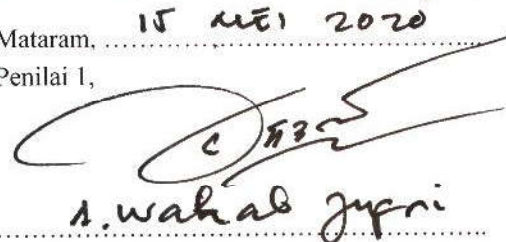 Mataram, 15 MEI 2020
Penilai 1,
A. Wahab Jufri